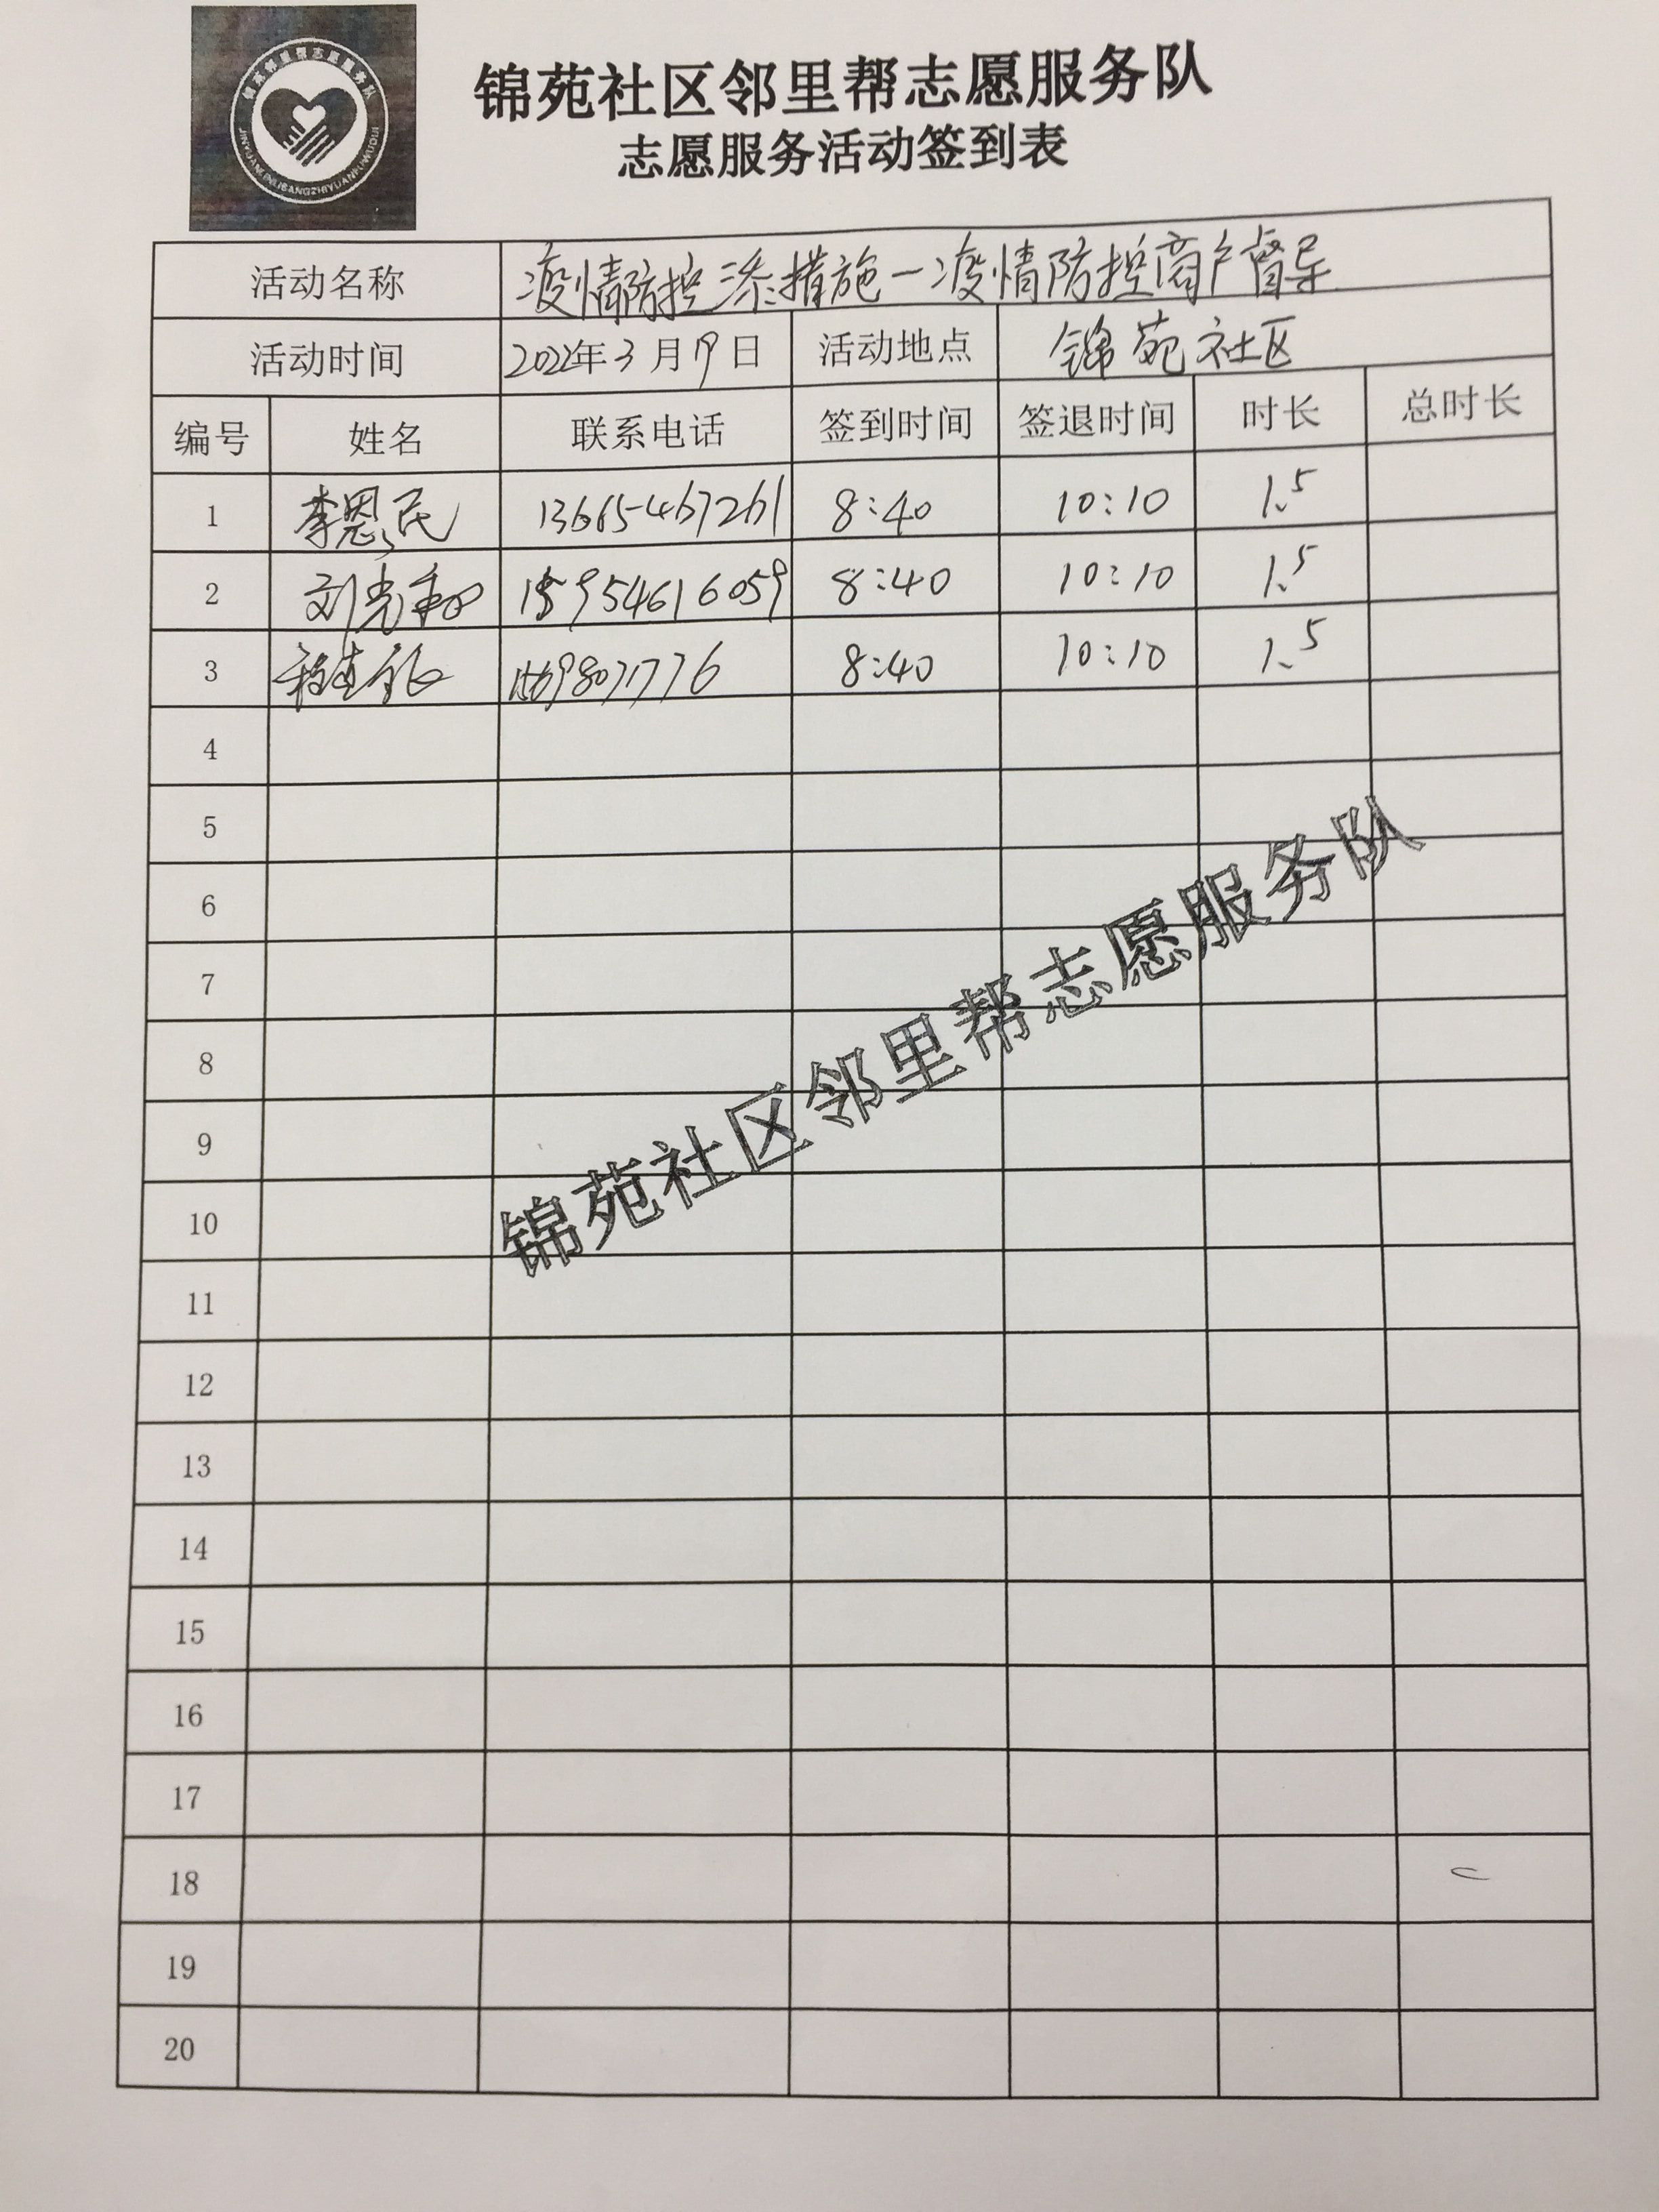 锦苑邻里帮志愿服务队
JINYUANLINLIBANGZHIYUANFUWUDUI
锦苑社区邻里帮志愿服务队
志愿服务活动签到表
活动名称 疫情防控 措施一疫情防控商户督导
活动时间 2022年3月19日 活动地点 锦苑社区
编号 姓名 联系电话 签到时间 签退时间 时长 总时长
1 李恩民 13665467261 8:40 10:10 1.5
2 刘光 15954616059 8:40 10:10 1.5
3 8:40 10:10 1.5
4
5
6
7
8
9
10
11
12
13
14
15
16
17
18
19
20
锦苑社区邻里帮志愿服务队